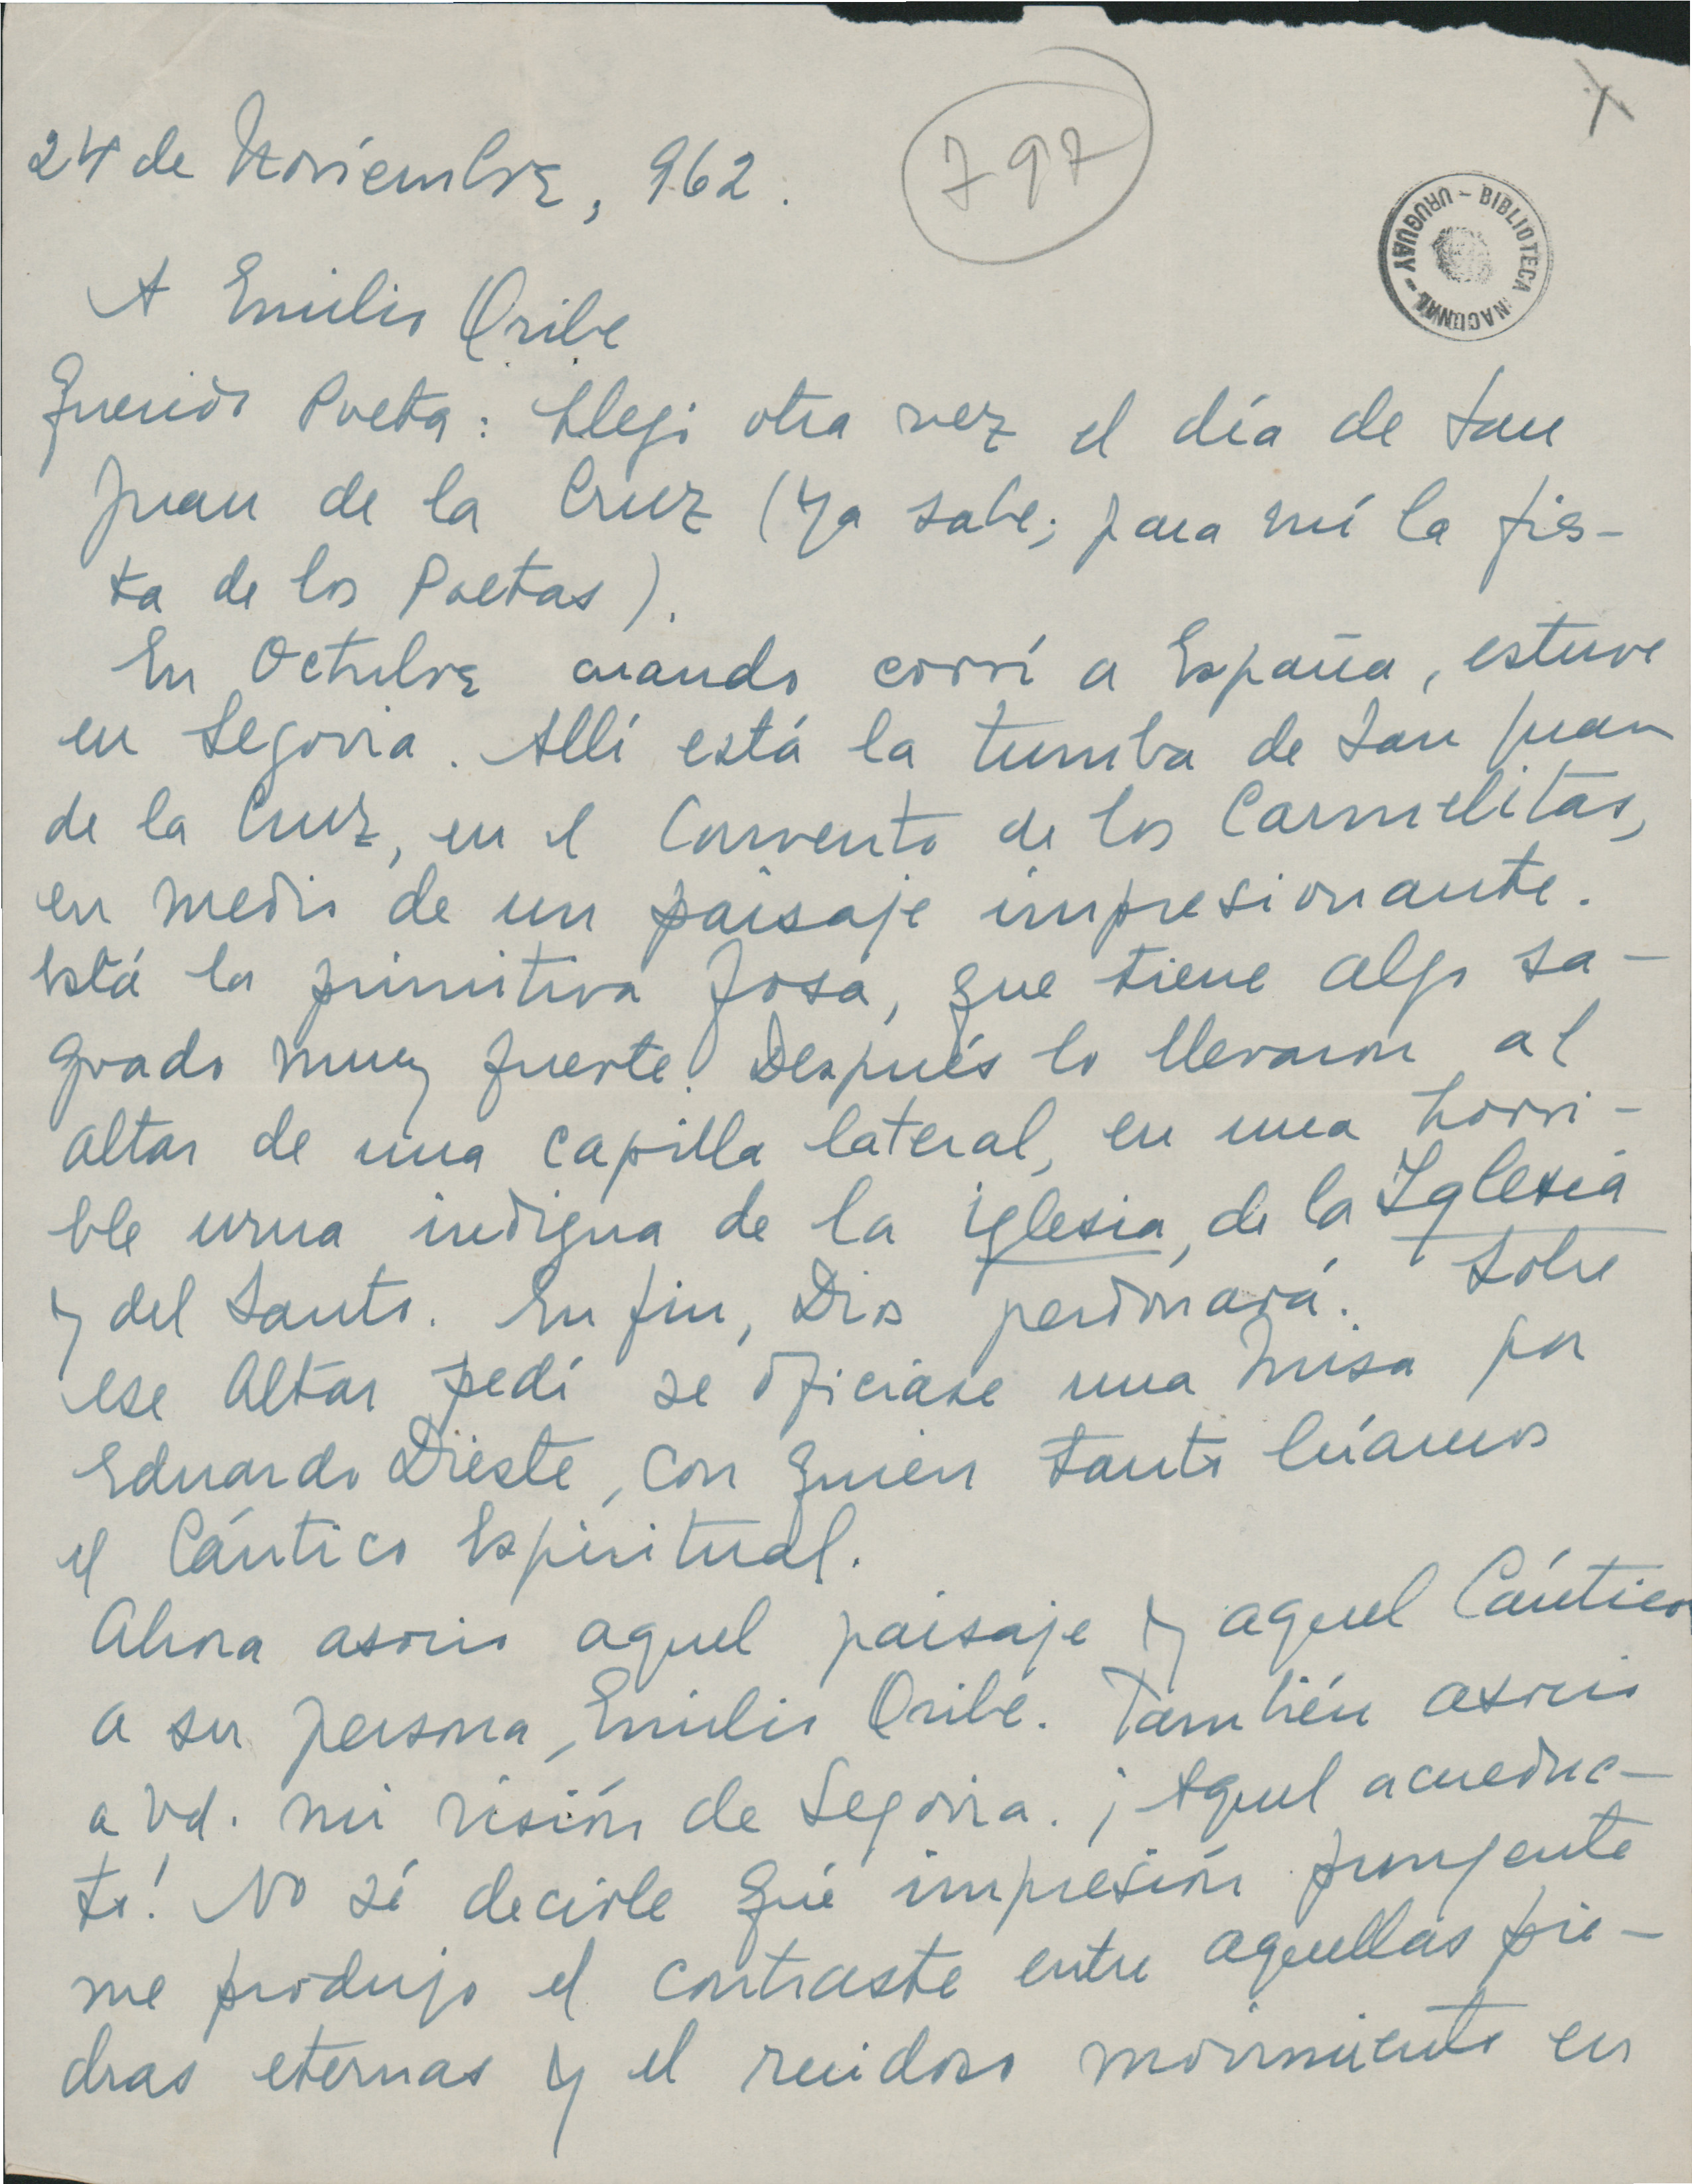 24 de Noviembre, 962.
797
BIBLIOTECA NACIONAL - URUGUAY -
A Emilio Oribe
Querido Poeta: Elegí otra vez el día de San
Juan de la Cruz (Ya sabe; para mí la fies-
ta de los Poetas).
En Octubre cuando corrí a España, estuve
en Segovia. Allí está la tumba de San Juan
de la Cruz, en el Convento de los Carmelitas,
en medio de un paisaje impresionante.
Está la primitiva fosa, que tiene algo sa-
grado muy fuerte. Después lo llevaron al
altar de una capilla lateral, en una horri-
ble urna indigna de la iglesia, de la Iglesia
y del Santo. En fin, Dios perdonará. Sobre
ese Altar pedí se oficiase una misa por
Eduardo Dieste, con quien tanto leíamos
el Cántico Espiritual.
Ahora asocio aquel paisaje y aquel Cántico
a su persona, Emilio Oribe. También asocio
a Vd. mi visión de Segovia. ¡Aquel acueduc-
to! No sé decirle qué impresión pungente
me produjo el contraste entre aquellas pie-
dras eternas y el ruidoso movimiento en